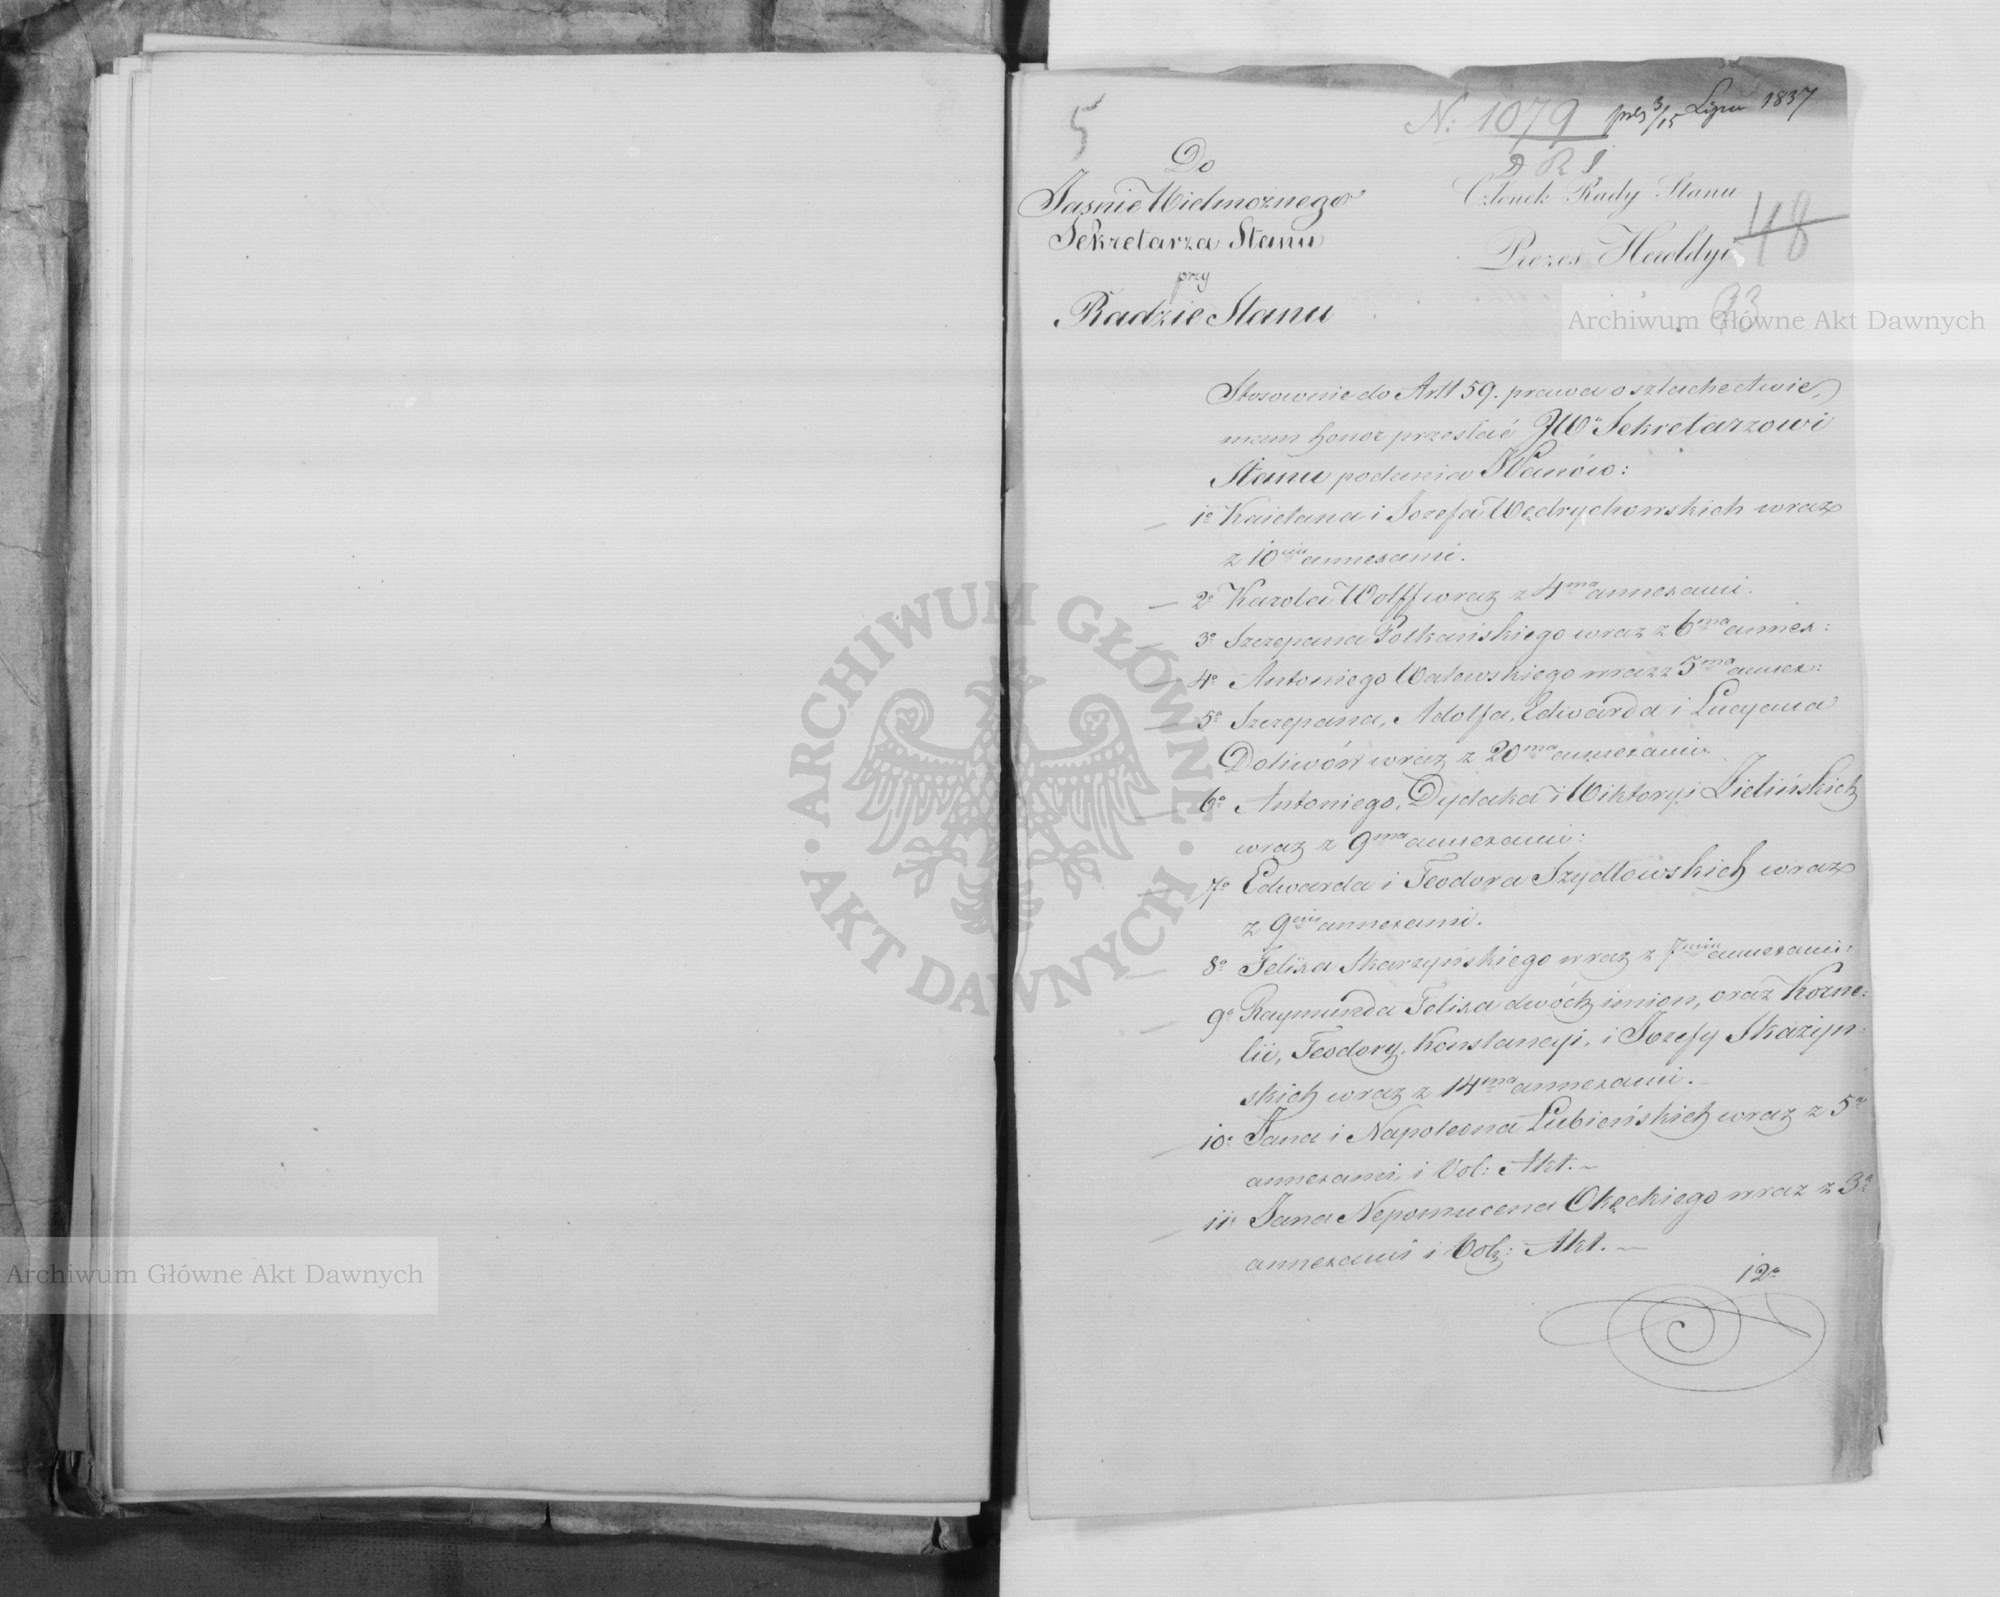 5
N: 1079 pres 3/15 Lipca 1837
D R S
Do
Jaśnie Wielmożnego
Sekretarza Stanu
przy
Radzie Stanu
Członek Rady Stanu
Prezes Heroldyi
48
93
Stosownie do Artt 59. prawa o szlachectwie,
mam honor przesłać JWu Sekretarzowi
Stanu podania WPanów:
1o Kaietana i Jozefa Wędrychowskich wraz
z 10cia annexami.
2o Karola Wolff wraz z 4ma annexami.
3o Szczepana Potkańskiego wraz z 6ma annex:
4o Antoniego Walewskiego wraz z 5ma annex:
5o Szczepana, Adolfa, Edwarda i Lucyana
Doliwów wraz z 20ma annexami
6o Antoniego, Dydaka i Wiktoryi Zielińskich
wraz z 9ma annexami:
7o Edwarda i Teodora Szydłowskich wraz
z 9cia annexami.
8o Felixa Skarzyńskiego wraz z 7miu annexami:
9o Raymunda Felixa dwóch imion, oraz Korne:
lii, Teodory, Konstancyi, i Jozefy Skażyń:
skich wraz z 14ma annexami.
10o Jana i Napoleona Łubieńskich wraz z 5a
annexami, i Vol: Akt.
11o Jana Nepomucena Okęckiego wraz z 3a
annexami i Vol: Akt.
12o
Archiwum Główne Akt Dawnych
Archiwum Główne Akt Dawnych
ARCHIWUM GŁÓWNE
AKT DAWNYCH